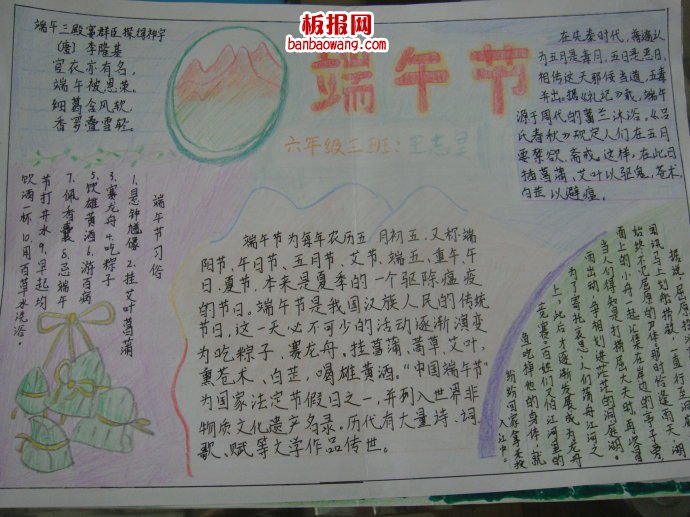 板报网
banbaowang.com
端午三殿宴群臣探得神字
(唐) 李隆基
宜衣亦有名，
端午被恩荣。
细葛含风软，
香罗叠雪轻。
端午节
六年级三班：
在先秦时代，普遍认
为五月是毒月，五日是恶日，
相传这天邪佞当道，五毒
并出。据《礼记》载，端午
源于周代的蓄兰沐浴。《吕
氏春秋》规定人们在五月
要禁欲、斋戒。这样，在此日
插菖蒲、艾叶以驱鬼，苍术、
白芷以避瘟。
端午节习俗
1.悬钟馗像 2.挂艾叶菖蒲
3.赛龙舟 4.吃粽子
5.饮雄黄酒 6.游百病
7.佩香囊 8.忌端午
节打井水 9.早起均
饮酒一杯 10.用百草水洗浴。
端午节为每年农历五月初五，又称端
阳节、午日节、五月节、艾节、端五、重午、午
日、夏节。本来是夏季的一个驱除瘟疫
的节日。端午节是我国汉族人民的传统
节日，这一天必不可少的活动逐渐演变
为吃粽子，赛龙舟，挂菖蒲、蒿草、艾叶，
熏苍术、白芷，喝雄黄酒。“中国端午节”
为国家法定节假日之一，并列入世界非
物质文化遗产名录。历代有大量诗、词、
歌、赋等文学作品传世。
据说，屈原投
直行至洞庭
始终不见屈原的尸体那时，恰逢雨天，湖
面上的小舟一起汇集在岸边的亭子旁。
当人们得知是打捞屈大夫时，再次冒
雨出动，争相划进茫茫的洞庭湖。
为了寄托哀思，人们荡舟江河之
上，此后才逐渐发展成为龙舟
竞赛。百姓们又怕江河里的
鱼吃掉他的身体，就
纷纷回家拿来米
入江中，